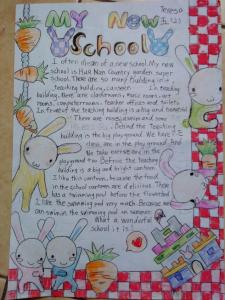 Teresa
MY New
School
I often dream of a new school. My new
school is Hua Nan Country garden super
School. There are so many building in
teaching building, In teaching
building, there are classrooms, music rooms,
rooms, computer rooms, teacher offices and toilets.
In front of the teaching building is a big and beautiful
There are and some
Behind the teaching
building is the big playground. We have P.E
class are in the playground. And
We take exercise in the
playground too. Before the teaching
building is a big and bright canteen.
I like this canteen, because the food
in the school canteen are delicious. There
has a swimming pool before the
I like the swimming pool very much. Because
can swim in the swimming pool in summer.
What a wonderful
school it is!